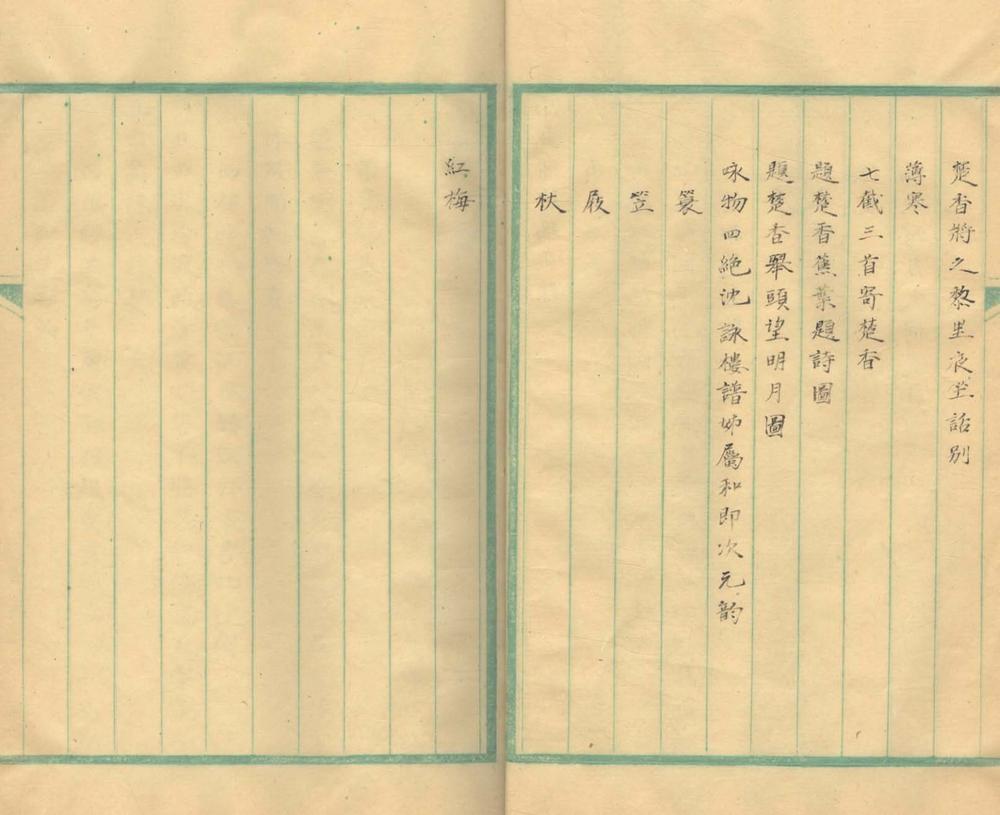 楚香將之黎里夜坐話別
薄寒
七截三首寄楚香
題楚香蕉葉題詩圖
題楚香舉頭望明月圖
咏物四絶沈詠樓譜姊屬和即次元韵
蓑
笠
屐
杖
紅梅